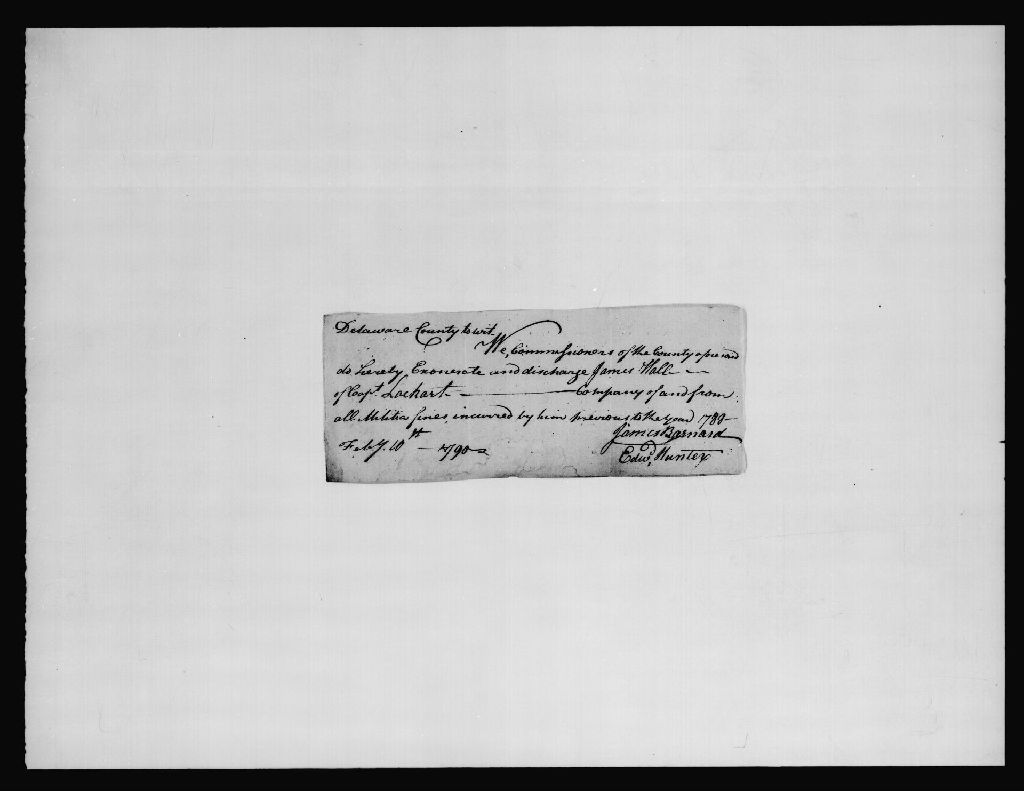 Delaware County to wit
We, Commissioners of the County aforesaid
do hereby Exonerate and discharge James Wall
of Capt. Lockart Company of and from
all Militia fines incurred by him previous to the year 1783
James Barnard
Feby. 10th 1790
Edwd. Hunter